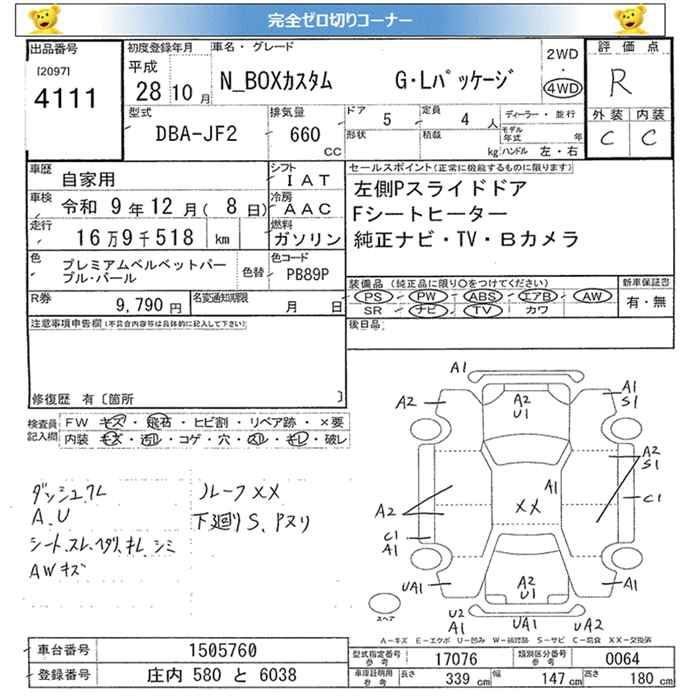 完全ゼロ切りコーナー
出品番号
[2097]
4111
初度登録年月
平成
28 10 月
車名・グレード
N_BOXカスタム G・Lパッケージ
2WD
・
4WD
評価点
R
外装 内装
C C
型式
DBA-JF2
排気量
660
CC
ドア 5
形状
定員 4 人
積載 kg
ディーラー・並行
モデル年式 年
ハンドル 左・右
車歴 自家用
シフト IAT
車検 令和 9 年 12 月( 8 日)
冷房 AAC
走行 16万9千518 km
燃料 ガソリン
色 プレミアムベルベットパープル・パール
色替
色コード PB89P
R券 9,790 円
名変通知期限 月 日
セールスポイント(正常に機能するものに限ります)
左側Pスライドドア
Fシートヒーター
純正ナビ・TV・Bカメラ
装備品(純正品に限り〇をつけてください)
PS PW ABS エアB AW
SR ナビ TV カワ
新車保証書
有・無
後日品
注意事項申告欄(不具合内容等は具体的に記入して下さい)
修復歴 有〔箇所 〕
検査員記入欄
FW キズ・飛石・ヒビ割・リペア跡・×要
内装 キズ・汚れ・コゲ・穴・スレ・キレ・破レ
ダッシュスレ
A.U
シート.スレ.ヘタリ.キレ.シミ
AWキズ
ルーフXX
下廻りS.Pヌリ
A1
A2
A2
U1
A1
S1
A2
S1
A2
A1
XX
C1
C1
A1
UA1
A2
U1
A1
U2
A1
UA1
UA2
スペア
A－キズ E－エクボ U－凹み W－補修跡 S－サビ C－腐食 XX－交換済
車台番号 1505760
登録番号 庄内 580 と 6038
型式指定番号 参考 17076
類別区分番号 参考 0064
車庫証明用 参考 長さ 339 cm 幅 147 cm 高さ 180 cm